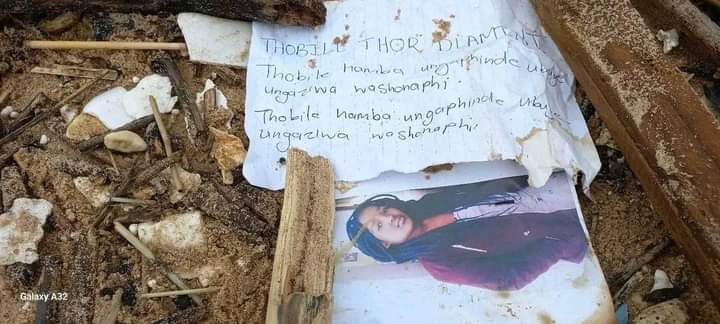 THOBILE THOR DIAMENT
Thobile hamba ungaphinde ubuye
ungaziwa washonaphi.
Thobile hamba ungaphinde ubuye
ungaziwa washonaphi.
Galaxy A32